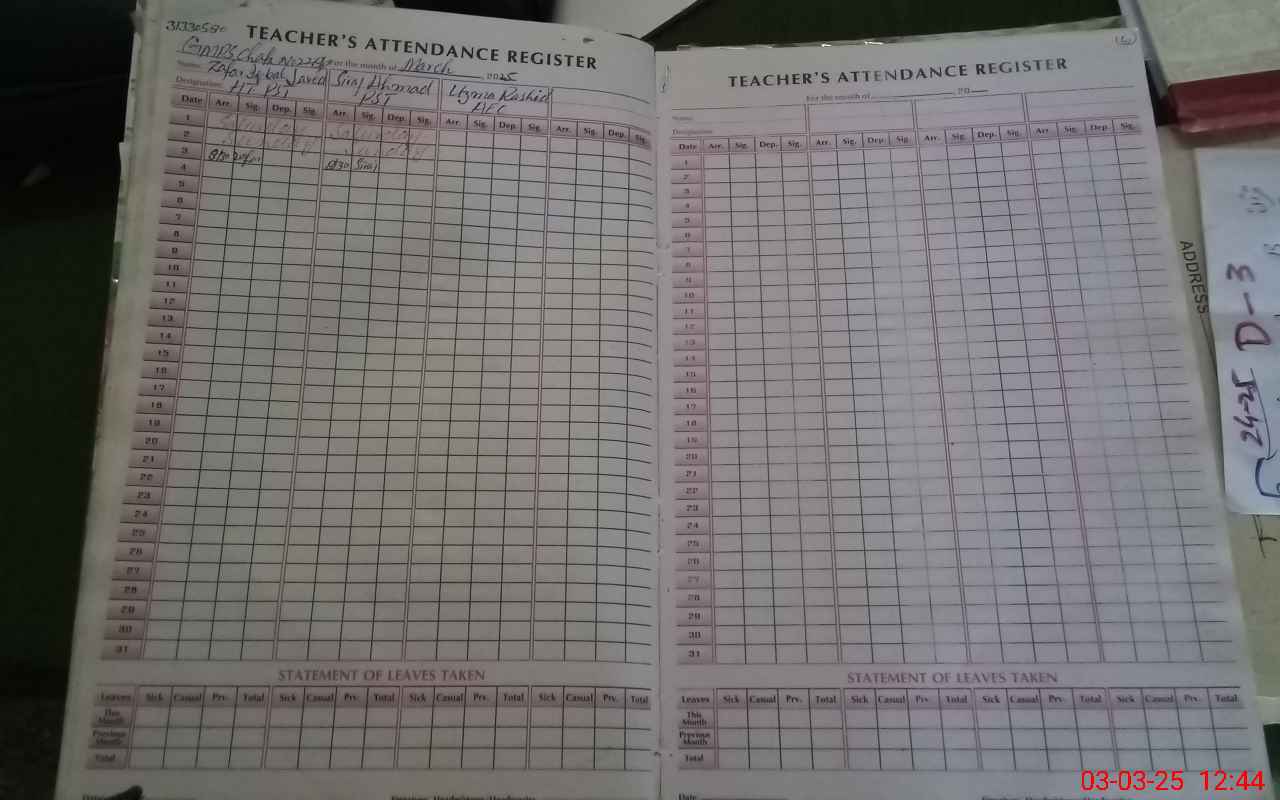 31330580
TEACHER'S ATTENDANCE REGISTER
GMPS Chak No
For the month of March 2025
Name: Zafar Iqbal Javed Siraj Ahmad Uzma Rashid
Designation: HT PST PST AEC
Date Arr. Sig. Dep. Sig. Arr. Sig. Dep. Sig. Arr. Sig. Dep. Sig. Arr. Sig. Dep. Sig.
1 Saturday Saturday
2 Sunday Sunday
3 830 Siraj
4
5
6
7
8
9
10
11
12
13
14
15
16
17
18
19
20
21
22
23
24
25
26
27
28
29
30
31
STATEMENT OF LEAVES TAKEN
Leaves Sick Casual Prv. Total Sick Casual Prv. Total Sick Casual Prv. Total Sick Casual Prv. Total
This Month
Previous Month
Total
TEACHER'S ATTENDANCE REGISTER
For the month of 20
Name:
Designation:
Date Arr. Sig. Dep. Sig. Arr. Sig. Dep. Sig. Arr. Sig. Dep. Sig. Arr. Sig. Dep. Sig.
1
2
3
4
5
6
7
8
9
10
11
12
13
14
15
16
17
18
19
20
21
22
23
24
25
26
27
28
29
30
31
STATEMENT OF LEAVES TAKEN
Leaves Sick Casual Prv. Total Sick Casual Prv. Total Sick Casual Prv. Total Sick Casual Prv. Total
This Month
Previous Month
Total
Date
ADDRESS
D-3
24-25
03-03-25 12:44